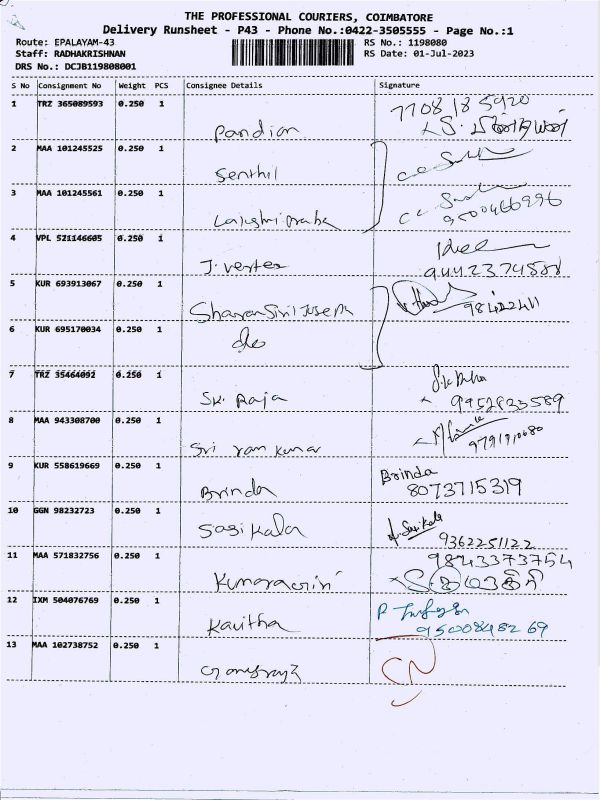 THE PROFESSIONAL COURIERS, COIMBATORE
Delivery Runsheet - P43 - Phone No.:0422-3505555 - Page No.:1
Route: EPALAYAM-43 RS No.: 1198080
Staff: RADHAKRISHNAN RS Date: 01-Jul-2023
DRS No.: DCJB119808001
S No Consignment No Weight PCS Consignee Details Signature
1 TRZ 365089593 0.250 1 Pandian 7708185920
2 MAA 101245525 0.250 1 Senthil
3 MAA 101245561 0.250 1 9500466996
4 VPL 521146605 0.250 1 J. vertex
5 KUR 693913067 0.250 1 98422411
6 KUR 695170034 0.250 1 do
7 TRZ 35464092 0.250 1 SK. Raja 9952833589
8 MAA 943308700 0.250 1 Sri ram kumar 9791910680
9 KUR 558619669 0.250 1 Brinda Brinda
8073715319
10 GGN 98232723 0.250 1 Sasikala 9362251122
11 MAA 571832756 0.250 1 9843373754
12 IXM 504076769 0.250 1 Kavitha
13 MAA 102738752 0.250 1